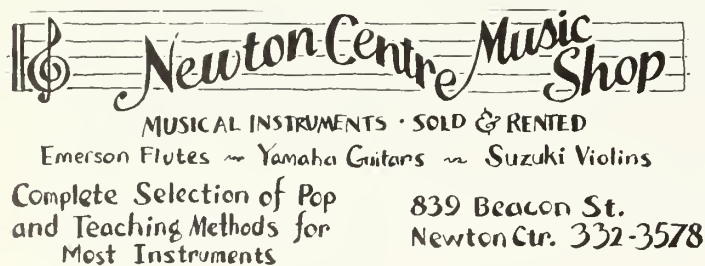 Newton Centre Music Shop
MUSICAL INSTRUMENTS · SOLD & RENTED
Emerson Flutes ~ Yamaha Guitars ~ Suzuki Violins
Complete Selection of Pop
and Teaching Methods for
Most Instruments
839 Beacon St.
Newton Ctr. 332-3578